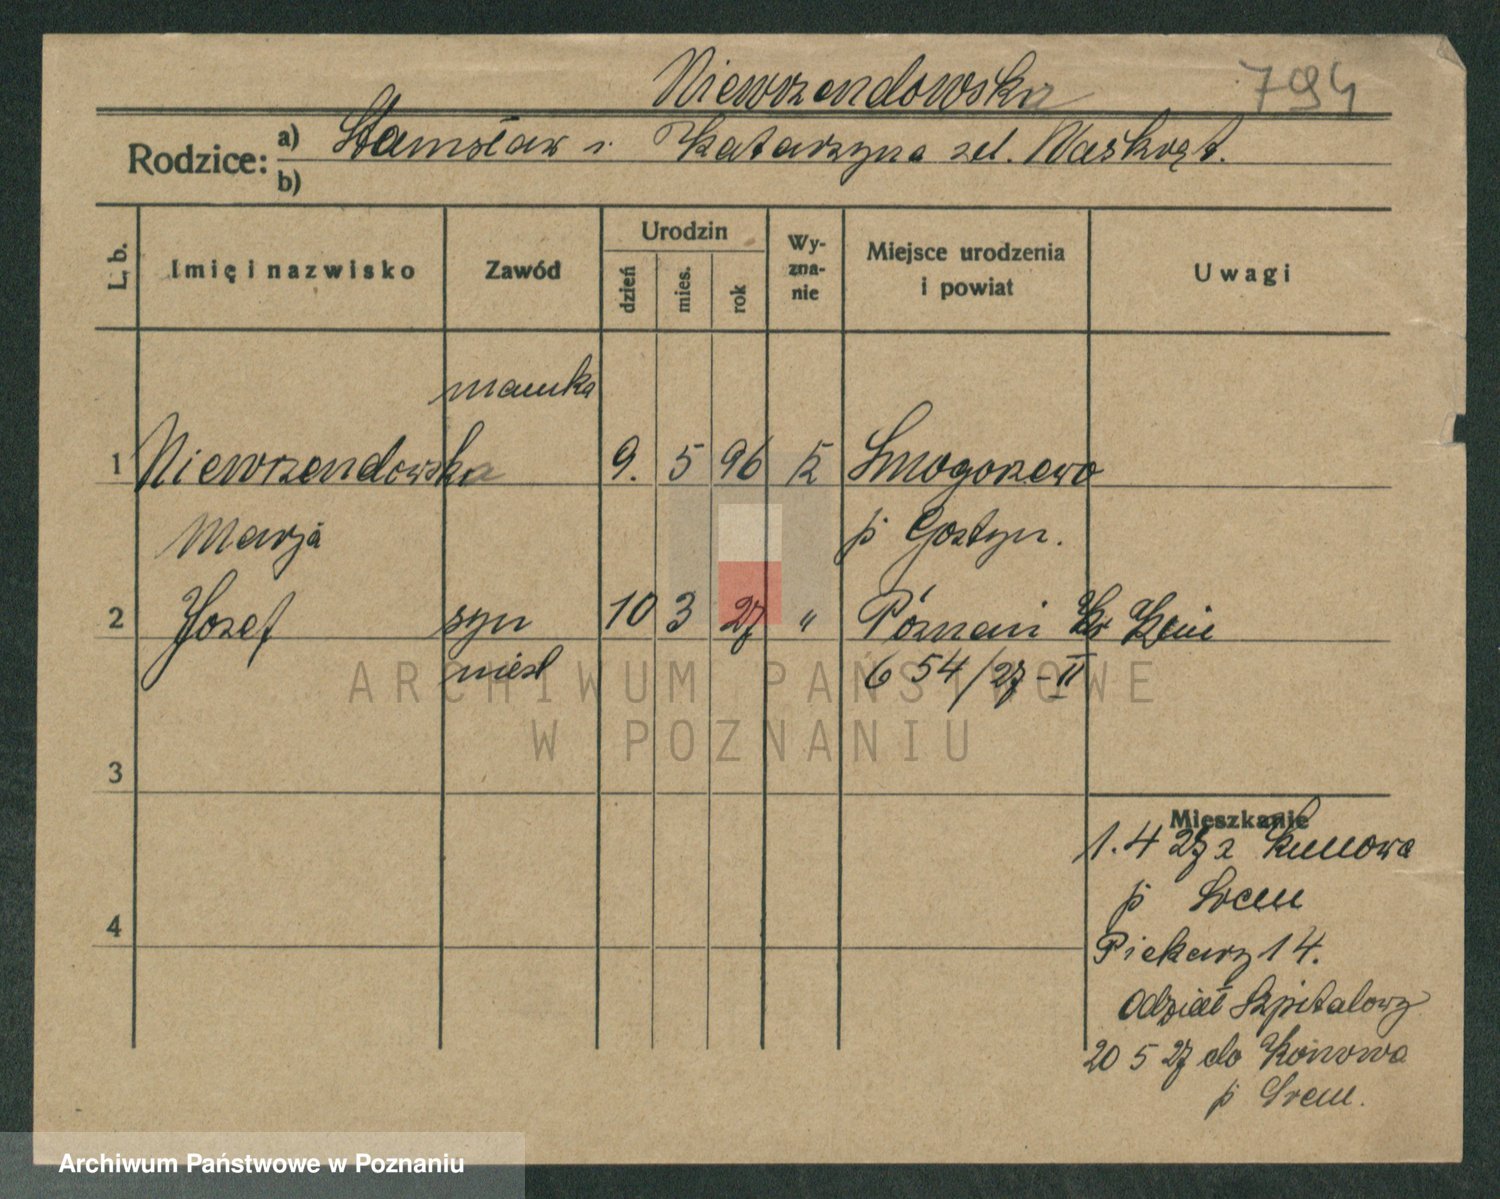 Niewrzendowska 794
Rodzice: a) Stanisław i Katarzyna zd. Naskręt.
b)
L. b. Imię i nazwisko Zawód Urodzin dzień mies. rok Wyznanie Miejsce urodzenia i powiat Uwagi
mamka
1 Niewrzendowska 9. 5 96 K Smogorzewo
Marja p Gostyn.
2 Jozef syn 10 3 27 " Poznań
nieśl 654/27-II
3
Mieszkanie
1. 4 27 z Kunowa
p Srem
4
Piekary 14.
Odział Szpitalowy
20 5 27 do Konowa
p Srem.
ARCHIWUM PAŃSTWOWE
W POZNANIU
Archiwum Państwowe w Poznaniu